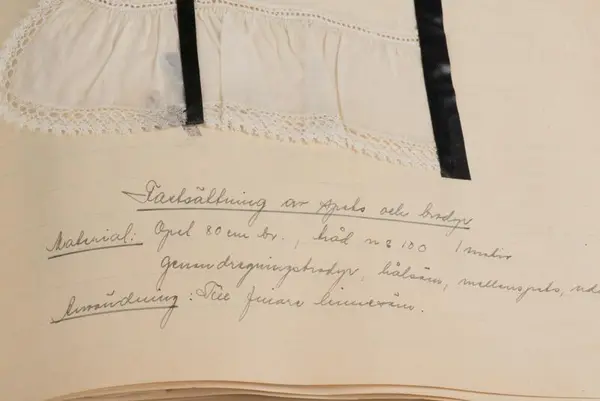 Fastsättning av spets och brodyr
Material: Opal 80 cm br., tråd n:s 100 1 meter
Genomdragningsbrodyr, hålsöm, mellanspets, udd
Användning: Till finare linnesöm.